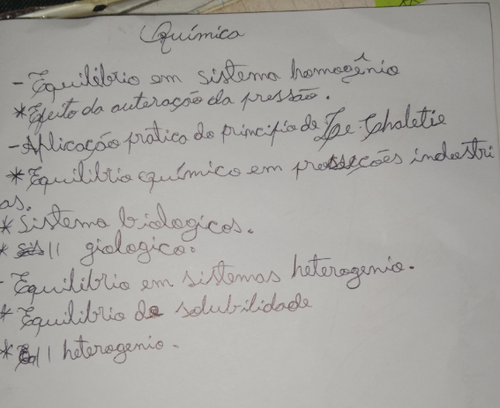 Química
- Equilibrio em sistema homogênio
* Efeito da auteração da pressão.
- Aplicação prática do principio de Le Chaletie
* Equilibrio químico em prosseções industri
as.
* Sistema biologicos.
* || giologico.
- Equilibrio em sistemas heterogenio.
* Equilibrio de solubilidade
* || heterogenio.